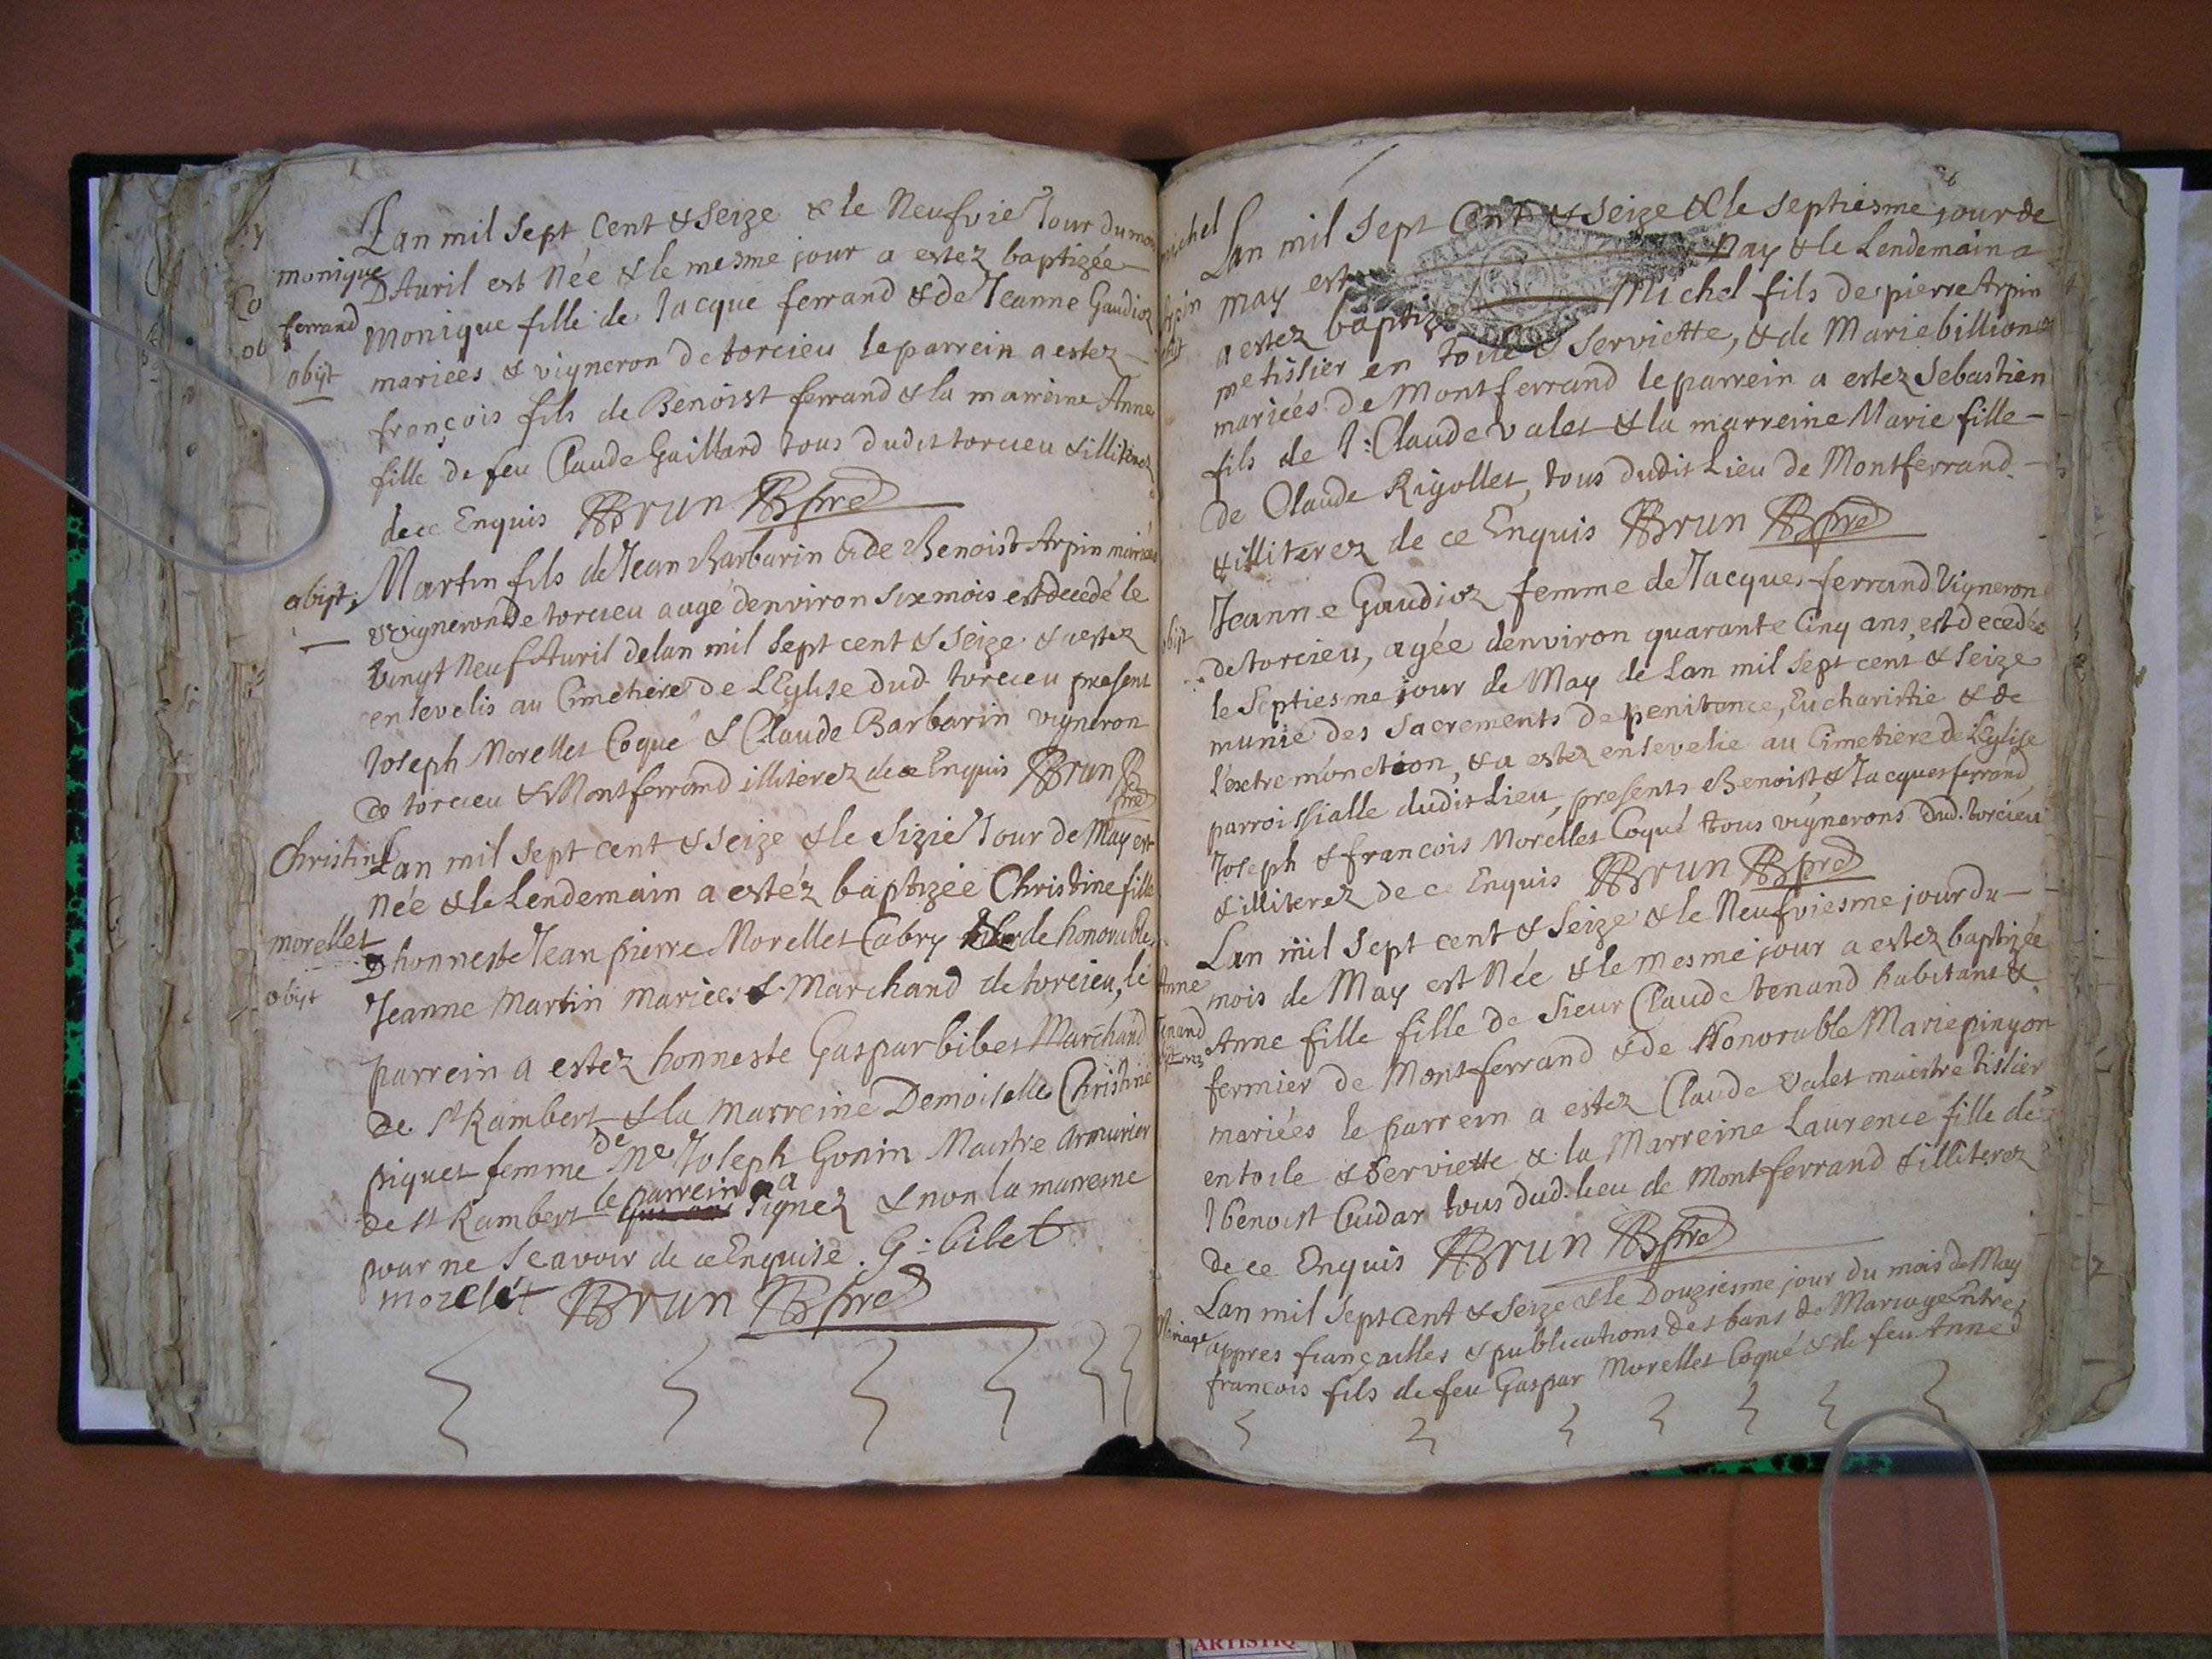 Lan mil Sept Cent & Seize & le Neufvie Jour du mois
monique
D'Auril est Née & le mesme jour a estez baptizée
ferrand
Monique fille de Jacque ferrand & de Jeanne Gaudioz
obijt
mariées & vigneron de torcieu le parrein a estez
françois fils de Benoist ferrand & la marreine Anne
fille de feu Claude Guillard tous dudit torcieu & illiterez
de ce Enquis BRUN Bpre
obijt
Martin fils de Jean Barbarin & de Benoist Arpin mariées
& vigneron de torcieu augé denviron six mois est decedé le
vingt neuf Auril de lan mil Sept cent & Seize & a estez
ensevelis au Cimetiere de L'Eglise dud. torcieu present
Joseph Morellet Coqué & Claude Barbarin vigneron
de torcieu & Montferrand illiterez de ce Enquis BRUN B
pre
Christine
Lan mil Sept cent & Seize & le Sizie Jour de May est
Née & le Lendemain a estéz baptizée Christine fille
morellet
D'honneste Jean pierre Morellet Cabry & de honorable
obijt
Jeanne Martin mariées & Marchand de torcieu, le
parrein a estez honneste Gaspar bibet Marchand
de St Rambert & la marreine Demoiselle Christine
piquet femme de Me Joseph Gonin Maistre Armurier
de St Rambert le parrein a signez & non la marreine
pour ne Scavoir de ce Enquise. G: bibet
morelét BRUN Bpre
michel
Lan mil Sept Cent & Seize & le Septiesme jour de
may est Nay & le Lendemain a
Arpin
a estez baptizé Michel fils de pierre Arpin
obijt
metissier en toile & Serviette, & de Marie billionez
mariées de Montferrand le parrein a estez Sebastien
fils de J: Claude valet & la marreine Marie fille
de Claude Rigollet, tous dudit Lieu de Montferrand
& illiterez de ce Enquis BRUN Bpre
Jeanne Gaudioz femme de Jacques ferrand Vigneron
obijt
de torcieu, agée denviron quarante Cinq ans, est decedée
le Septiesme jour de May de Lan mil Sept cent & Seize
munie des Sacrements de penitence, Eucharistie & de
l'extremonction, & a estez ensevelie au Cimetiere de L'Eglise
parroissialle dudit Lieu, presents Benoist & Jacques ferrand,
Joseph & francois Morellet Coqué tous vignerons dud. torcieu
& illiterez de ce Enquis BRUN Bpre
Lan mil Sept cent & Seize & le Neufviesme jour du
Anne
mois de May est Née & le mesme jour a estez baptizée
tenand
Anne fille fille de Sieur Claude tenand habitant &
fermier de Montferrand & de Honorable Marie pinyon
mariées le parrein a estez Claude valet maistre tissier
en toile & Serviette & la Marreine Laurence fille de
Benoist Cudar tous dud. lieu de Montferrand & illiterez
de ce Enquis BRUN Bpre
Lan mil Sept Cent & Seize & le Douziesme jour du mois de May
Mariage
appres fiançailles & publications des bans de Mariage Entre
francois fils de feu Gaspar Morellet Coqué & de feu Anne
ARTISTIQ